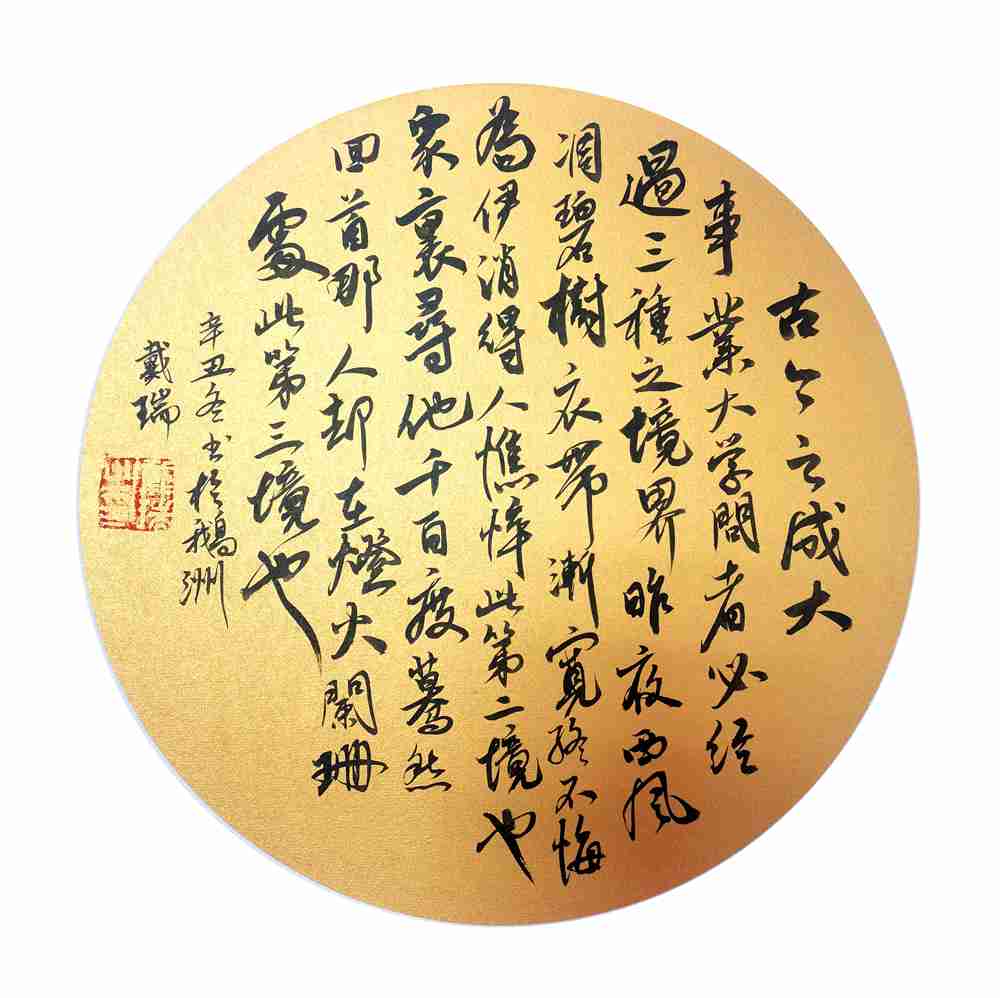 古今之成大
事業大学問者必经
過三種之境界昨夜西風
凋碧樹衣帶漸寬終不悔
為伊消得人憔悴此第二境也
衆裏尋他千百度驀然
回首那人却在燈火闌珊
處此第三境也
辛丑冬书於鵝洲
戴瑞